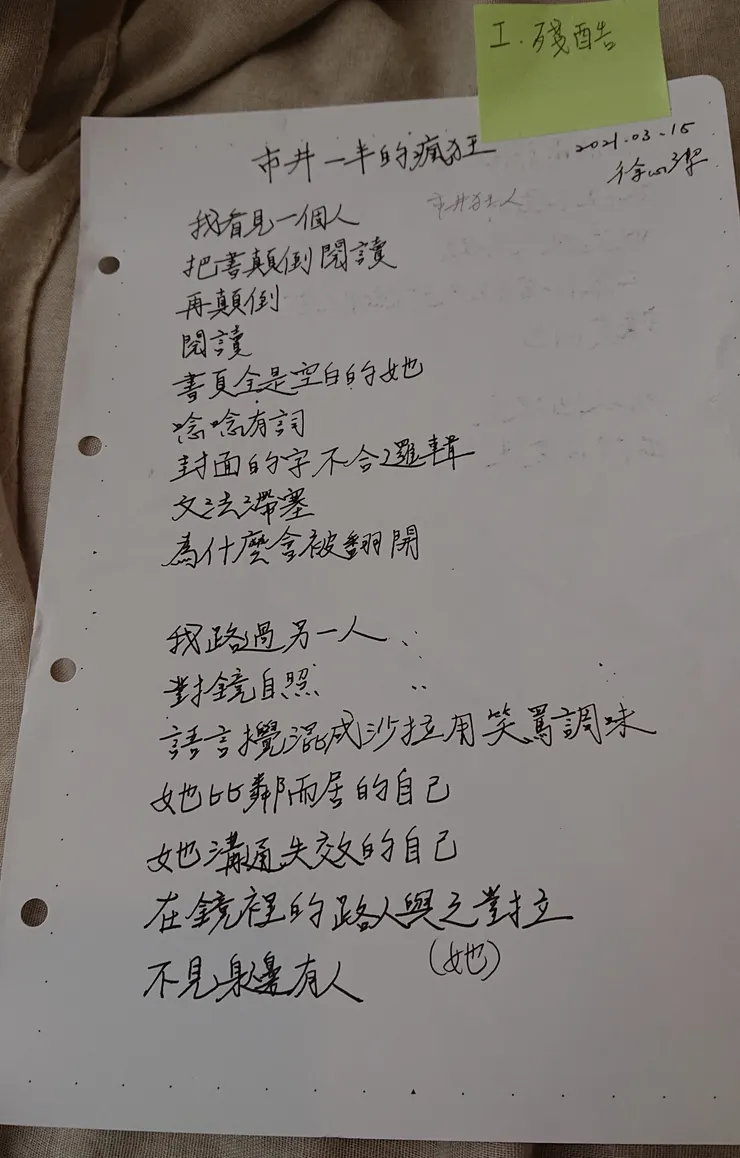 I.殘酷
市井一半的瘋狂
2021.03.15
徐心潔
市井狂人
我看見一個人
把書顛倒閱讀
再顛倒
閱讀
書頁全是空白的她
唸唸有詞
封面的字不合邏輯
文法滯塞
為什麼會被翻開
我路過另一人
對鏡自照
語言攪混成沙拉用笑罵調味
她比鄰而居的自己
她溝通失效的自己
在鏡裡的路人與之對立
(她)
不見身邊有人